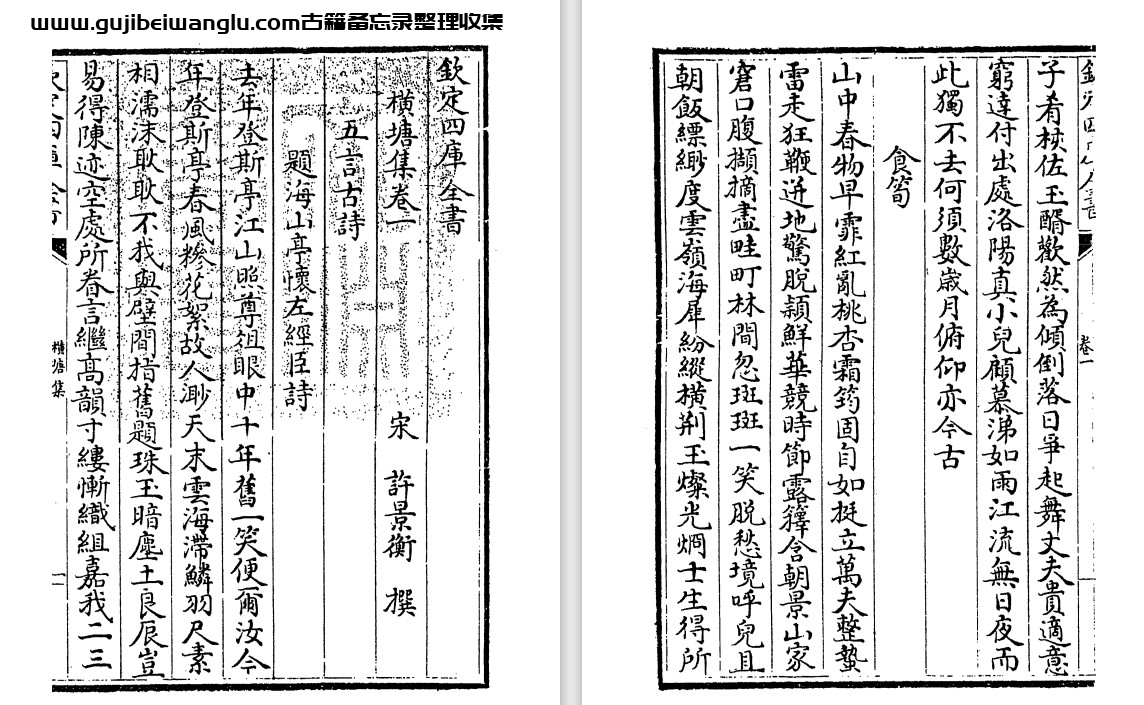 www.gujibeiwanglu.com古籍备忘录整理收集
欽定四庫全書
橫塘集卷一 宋 許景衡 撰
五言古詩
題海山亭懷左經臣詩
去年登斯亭江山照尊俎眼中十年舊一笑便爾汝今
年登斯亭春風糝花絮故人渺天末雲海滯鱗羽尺素
相濡沫耿耿不我與壁間指舊題珠玉暗塵土良辰豈
易得陳迹空處所眷言繼高韻寸縷慚織組嘉我二三
橫塘集 一
卷一
子肴核佐玉醑歡然為傾倒落日爭起舞丈夫貴適意
窮達付出處洛陽真小兒顧慕涕如雨江流無日夜而
此獨不去何須數歲月俯仰亦今古
食筍
山中春物早霏紅亂桃杏霜筠固自如挺立萬夫整蟄
雷走狂鞭迸地驚脫穎鮮華競時節露籜含朝景山家
窘口腹擷摘盡畦町林間忽斑斑一笑脫愁境呼兒且
朝飯縹緲度雲嶺海犀紛縱橫荆玉燦光炯士生得所